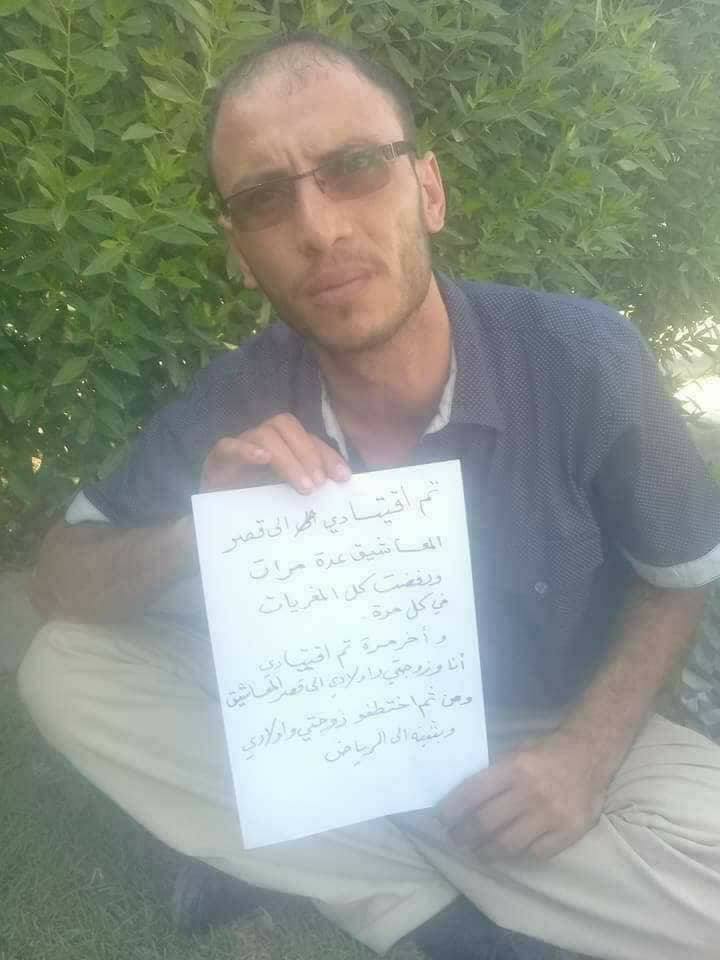 تم اقيتادي الى قصر
المعاشيق عدة مرات
ورفضت كل المغريات
في كل مرة.
و أخر مرة تم اقتيادي
أنا وزوجتي واولادي الى قصر المعاشيق
ومن ثم اختطفو زوجتي واولادي
الى الرياض